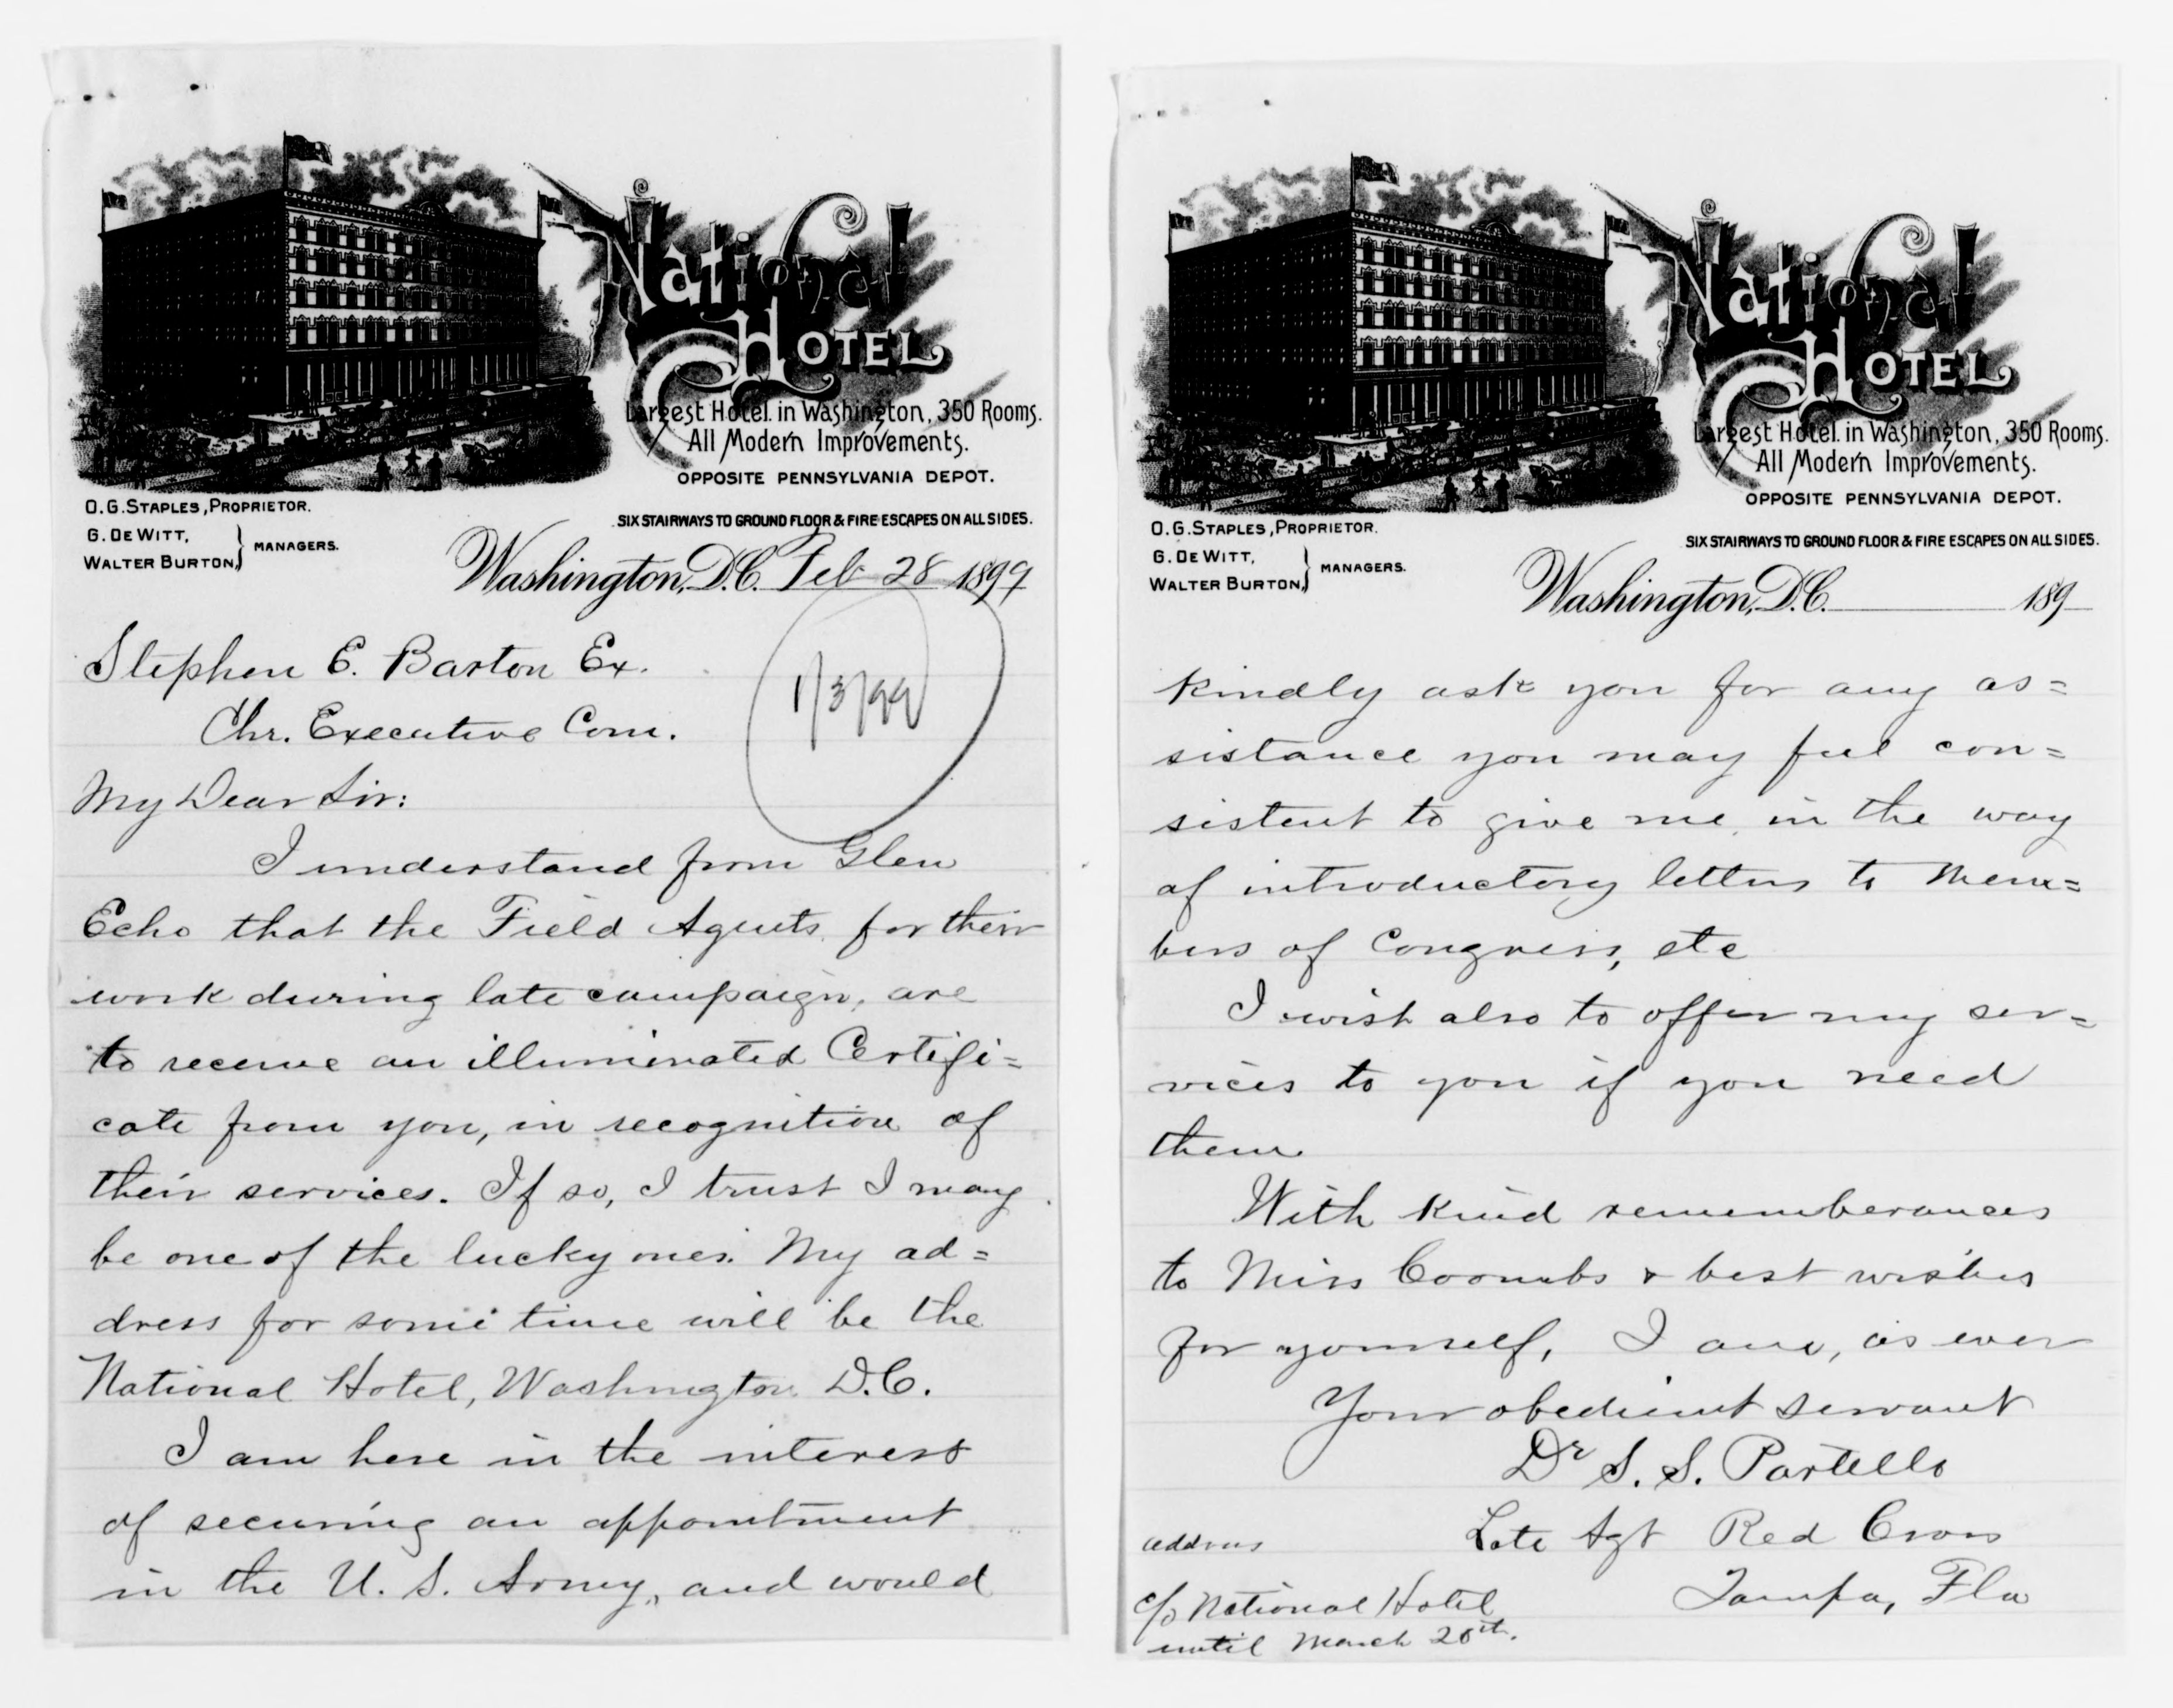 National
Hotel
Largest Hotel in Washington, 350 Rooms.
All Modern Improvements.
OPPOSITE PENNSYLVANIA DEPOT.
O.G. STAPLES, PROPRIETOR.
G. DEWITT,
WALTER BURTON, } MANAGERS.
SIX STAIRWAYS TO GROUND FLOOR & FIRE ESCAPES ON ALL SIDES.
Washington, D.C. Feb 28 1899
1/3/99
Stephen E. Barton Ex.
Chr. Executive Com.
My Dear Sir:
I understand from Glen
Echo that the Field Agents, for their
work during late campaign, are
to receive an illuminated Certifi=
cate from you, in recognition of
their services. If so, I trust I may
be one of the lucky ones. My ad=
dress for some time will be the
National Hotel, Washington D.C.
I am here in the interest
of securing an appointment
in the U. S. Army, and would
National
Hotel
Largest Hotel in Washington, 350 Rooms.
All Modern Improvements.
OPPOSITE PENNSYLVANIA DEPOT.
O.G. STAPLES, PROPRIETOR.
G. DEWITT,
WALTER BURTON, } MANAGERS.
SIX STAIRWAYS TO GROUND FLOOR & FIRE ESCAPES ON ALL SIDES.
Washington, D.C. 189
kindly ask you for any as=
sistance you may feel con=
sistent to give me, in the way
of introductory letters to Mem=
bers of Congress, etc
I wish also to offer my ser=
vices to you if you need
them.
With kind rememberances
to Miss Coombs & best wishes
for yourself, I am, as ever
Your obedient servant
Dr S. S. Partello
Late Agt Red Cross
Tampa, Fla
address
c/o National Hotel
until March 20th.